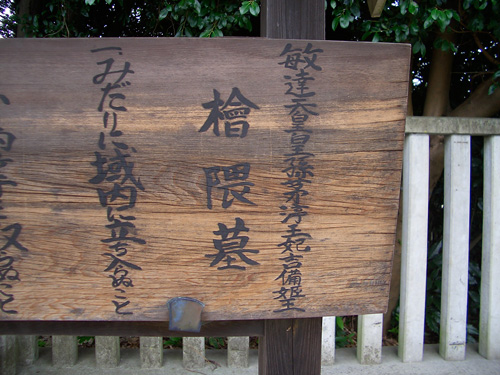 敏達天皇皇孫茅渟王妃吉備姫王
檜隈墓
一、みだりに域内に立ち入らぬこと